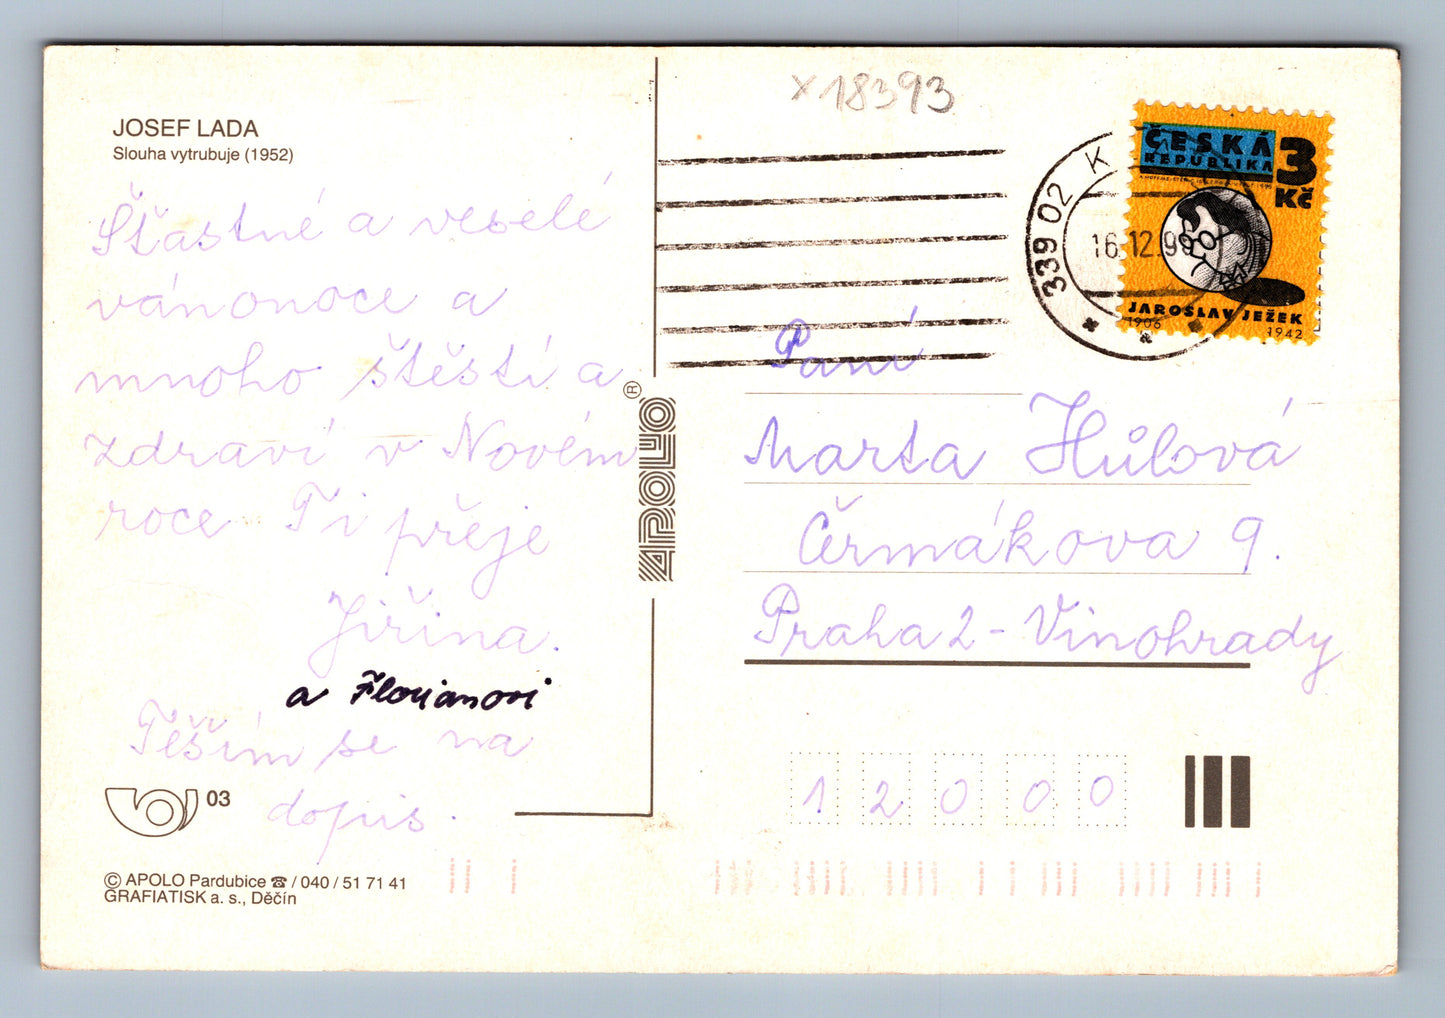 JOSEF LADA
Slouha vytrubuje (1952)
Šťastné a veselé
vánonoce a
mnoho štěstí a
zdraví v Novém
roce Ti přeje
Jiřina.
a Florianovi
Těším se na
dopis.
03
© APOLO Pardubice ☎ / 040 / 51 71 41
GRAFIATISK a. s., Děčín
APOLO ®
x 18393
339 02 K
16.12.9
a
ČESKÁ
REPUBLIKA
3
Kč
JAROSLAV JEŽEK
1906
1942
Paní
Marta Hůlová
Čermákova 9.
Praha 2 - Vinohrady
12000